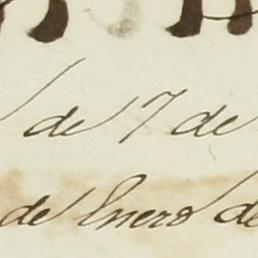 de 7 de
de Enero de